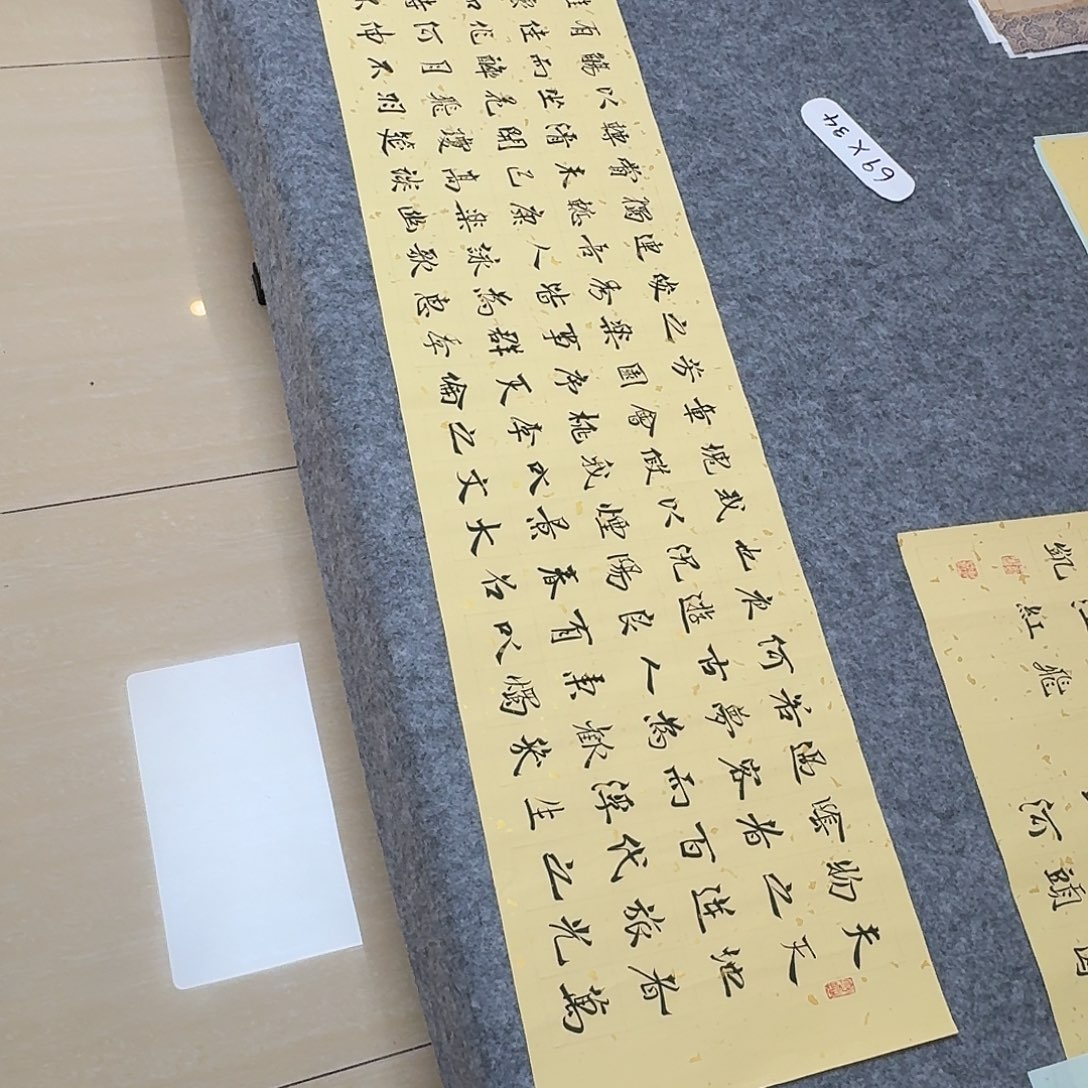 夫天地者萬
物之逆旅光
陰者百代之
過客而浮生
若夢為歡幾
何古人秉燭
夜遊良有以
也況陽春召
我以煙景大
塊假我以文
章會桃李之
芳園序天倫
之樂事群季
俊秀皆為惠
連吾人詠歌
獨慚康樂幽
賞未已高談
轉清開瓊筵
以坐花飛羽
觴而醉月不
有佳作何伸
雅懷如詩不
69 x 34
凱
飛紅
頭河